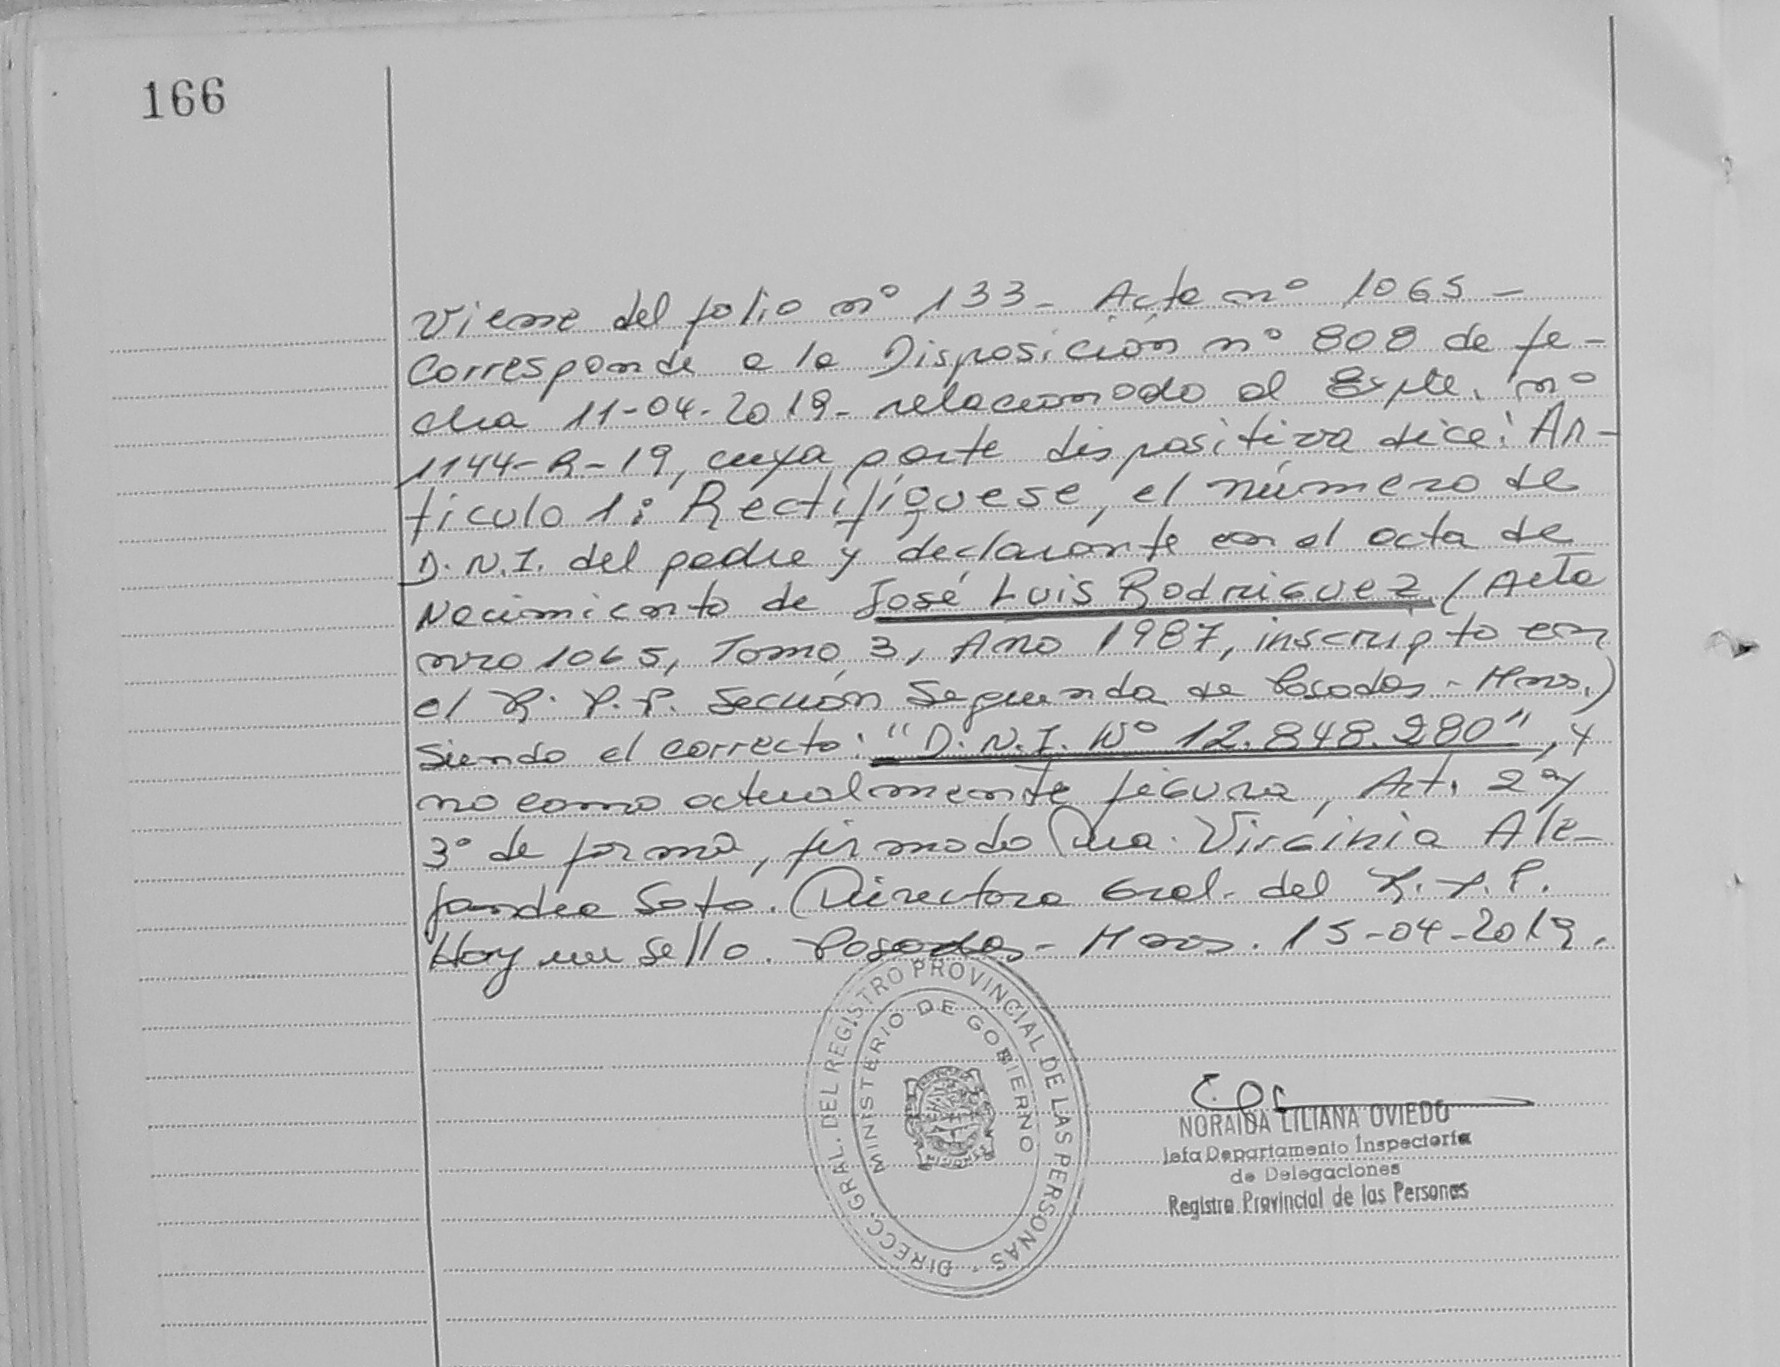 166
Viene del folio nº 133- Acta nº 1065 -
Corresponde a la Disposición nº 808 de fe-
cha 11-04-2019- relacionado al Expte. nº
1144-R-19, cuya parte dispositiva dice: Ar-
tículo 1: Rectifíquese, el número de
D.N.I. del padre y declarante en el acta de
Nacimiento de José Luis Rodriguez (Acta
nro 1065, Tomo 3, Año 1987, inscripto en
el R.P.P. Sección Segunda de Posadas - Mnes.)
Siendo el correcto: "D.N.I. Nº 12.848.280", y
no como actualmente figura, Art. 2º y
3º de forma, firmado Dra. Virginia Ale-
jandra Soto. Directora Gral. del R.P.P.
Hay un sello. Posadas - Mnes. 15-04-2019.
DIRECC. GRAL. DEL REGISTRO PROVINCIAL DE LAS PERSONAS
MINISTERIO DE GOBIERNO
NORAIDA LILIANA OVIEDO
Jefa Departamento Inspectoria
de Delegaciones
Registro Provincial de las Personas